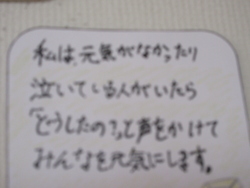 私は、元気がなかったり
泣いている人がいたら
「どうしたの?」と声をかけて
みんなを元気にします。